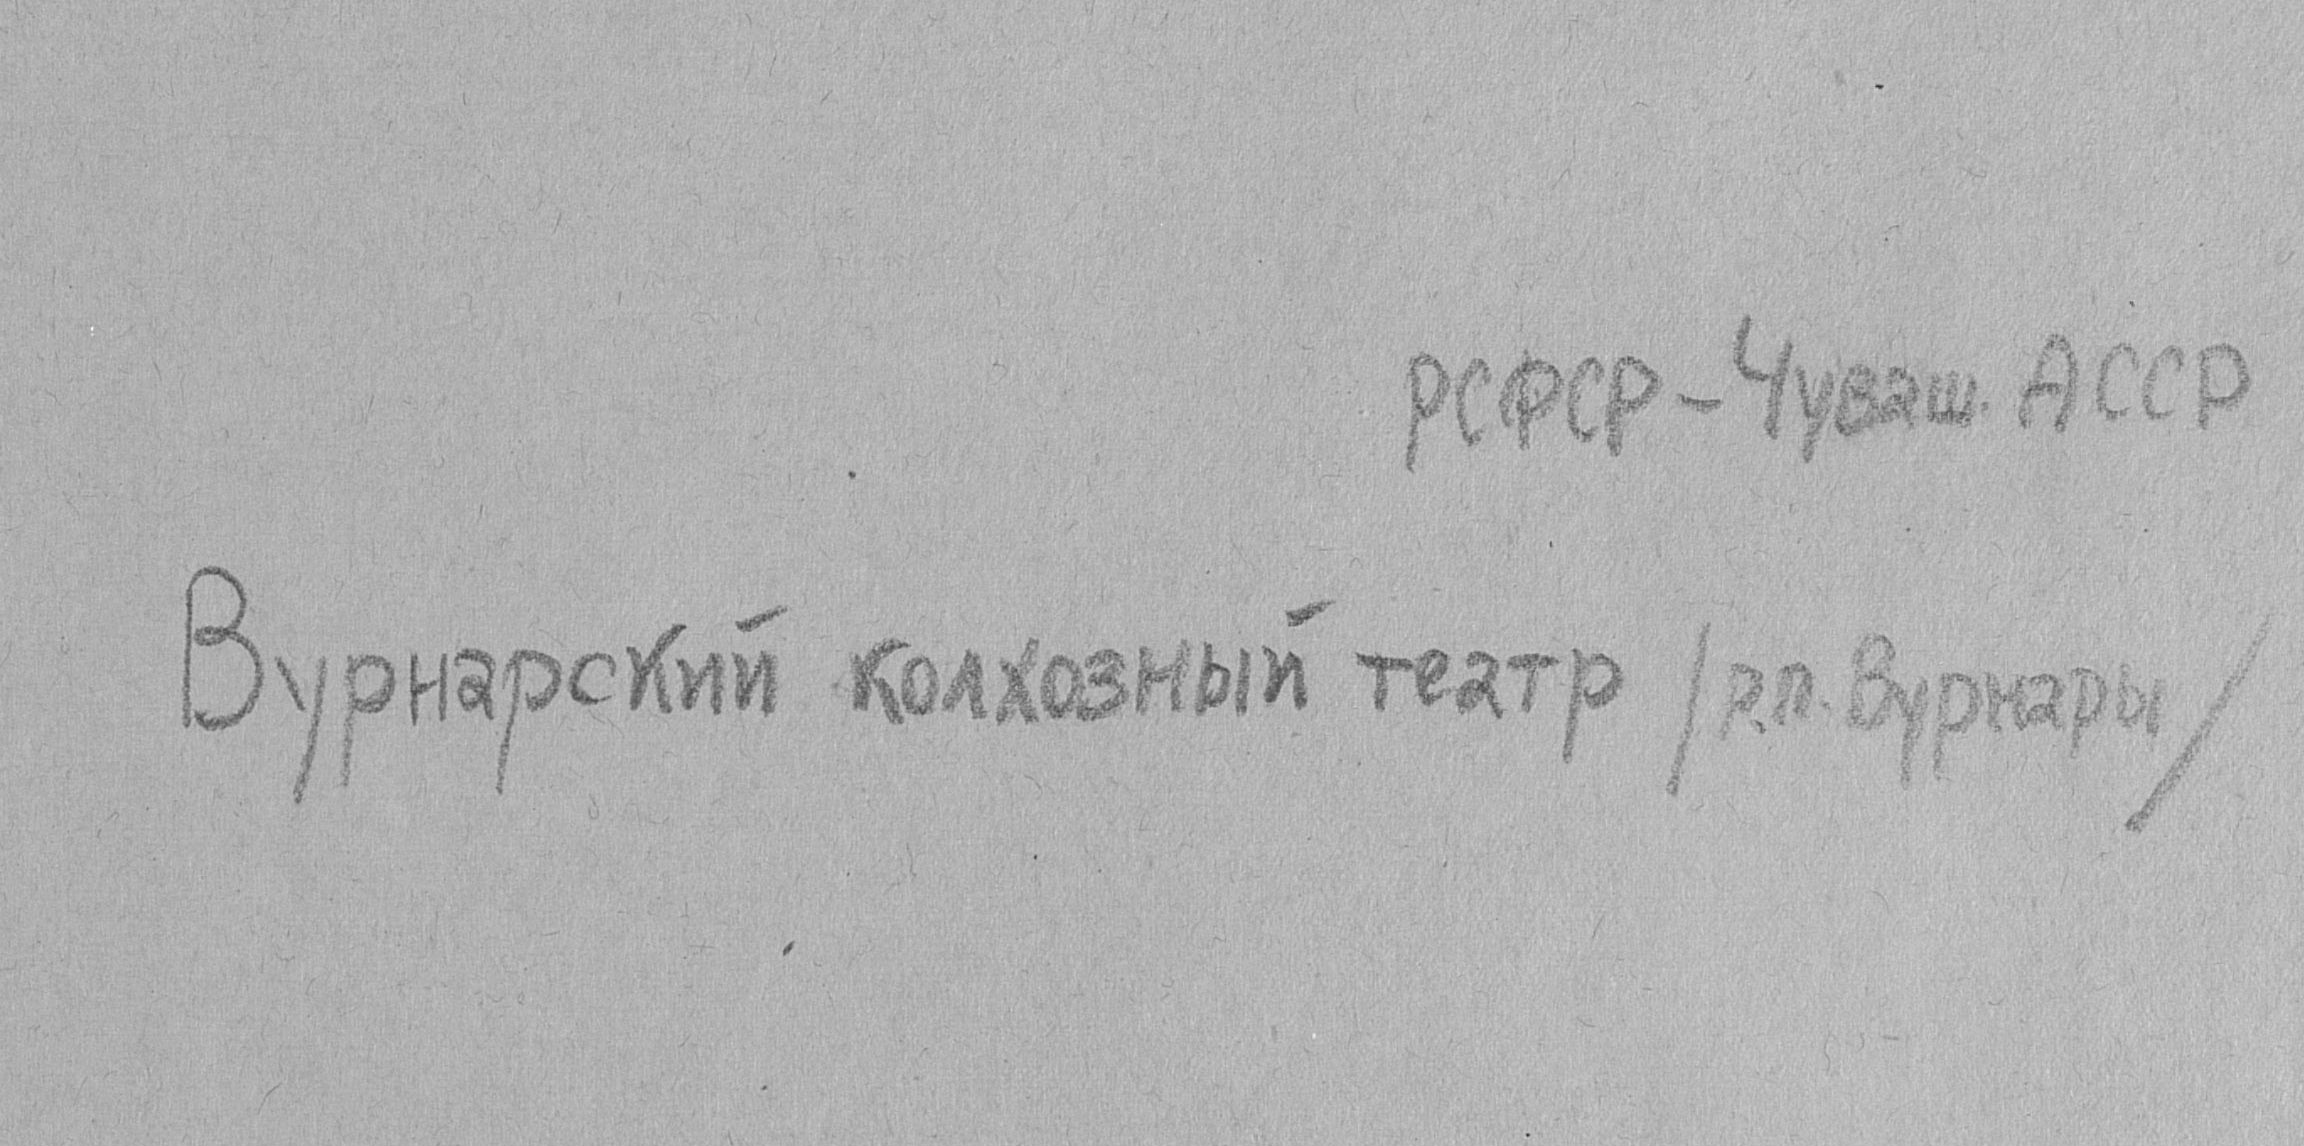 РСФСР - Чуваш. АССР
Вурнарский колхозный театр /р.п. Вурнары/